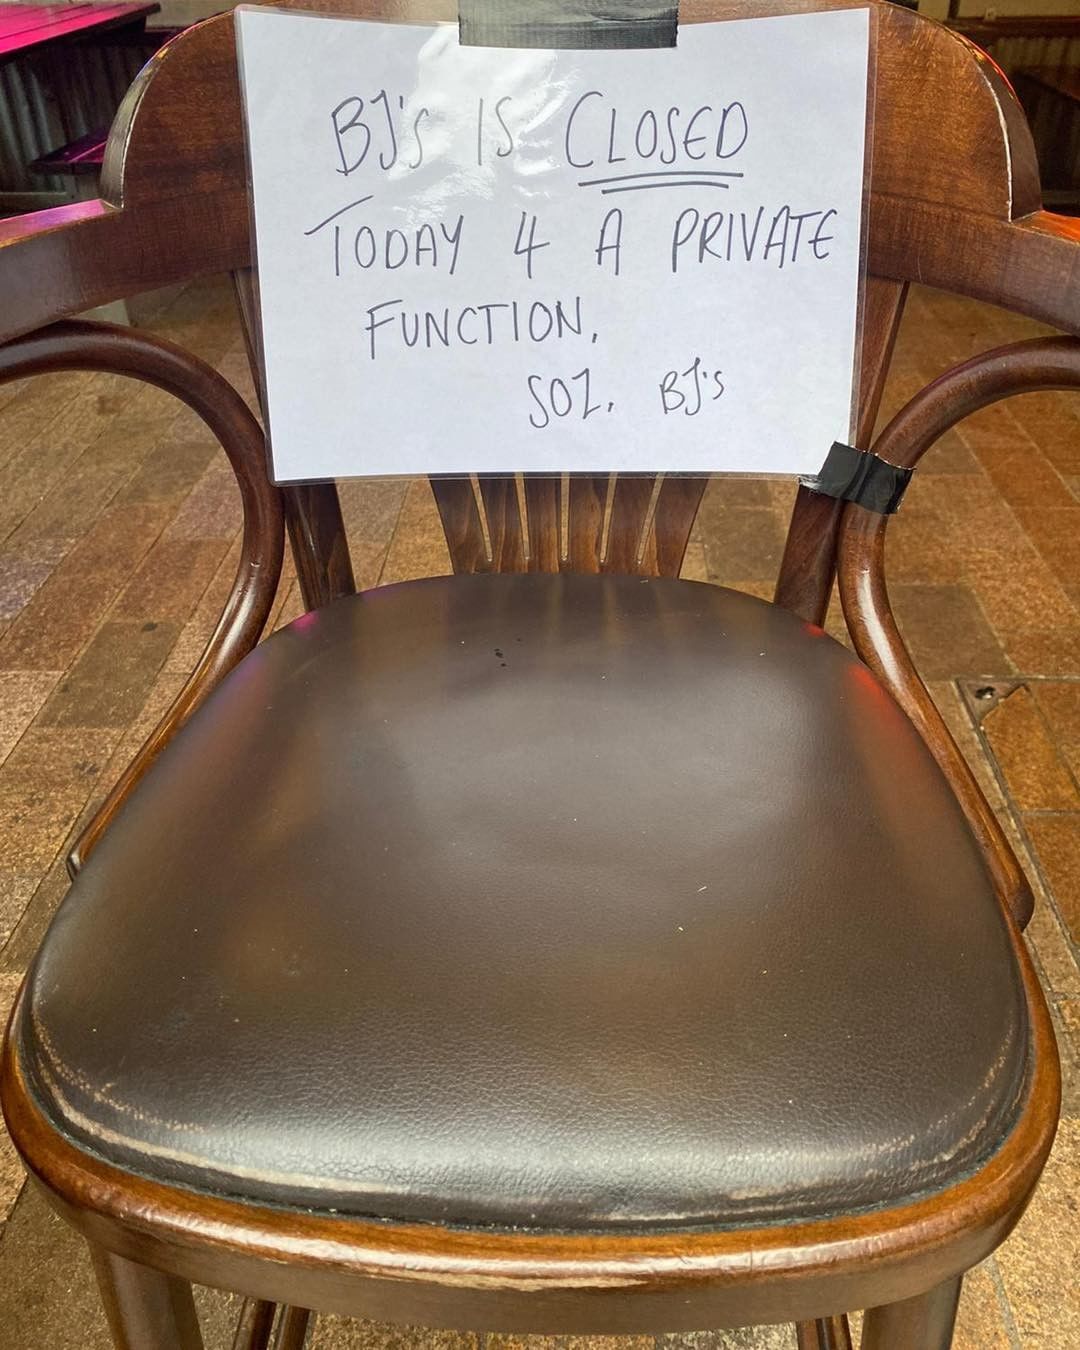 BJ's IS CLOSED
TODAY 4 A PRIVATE
FUNCTION.
SOZ. BJ's